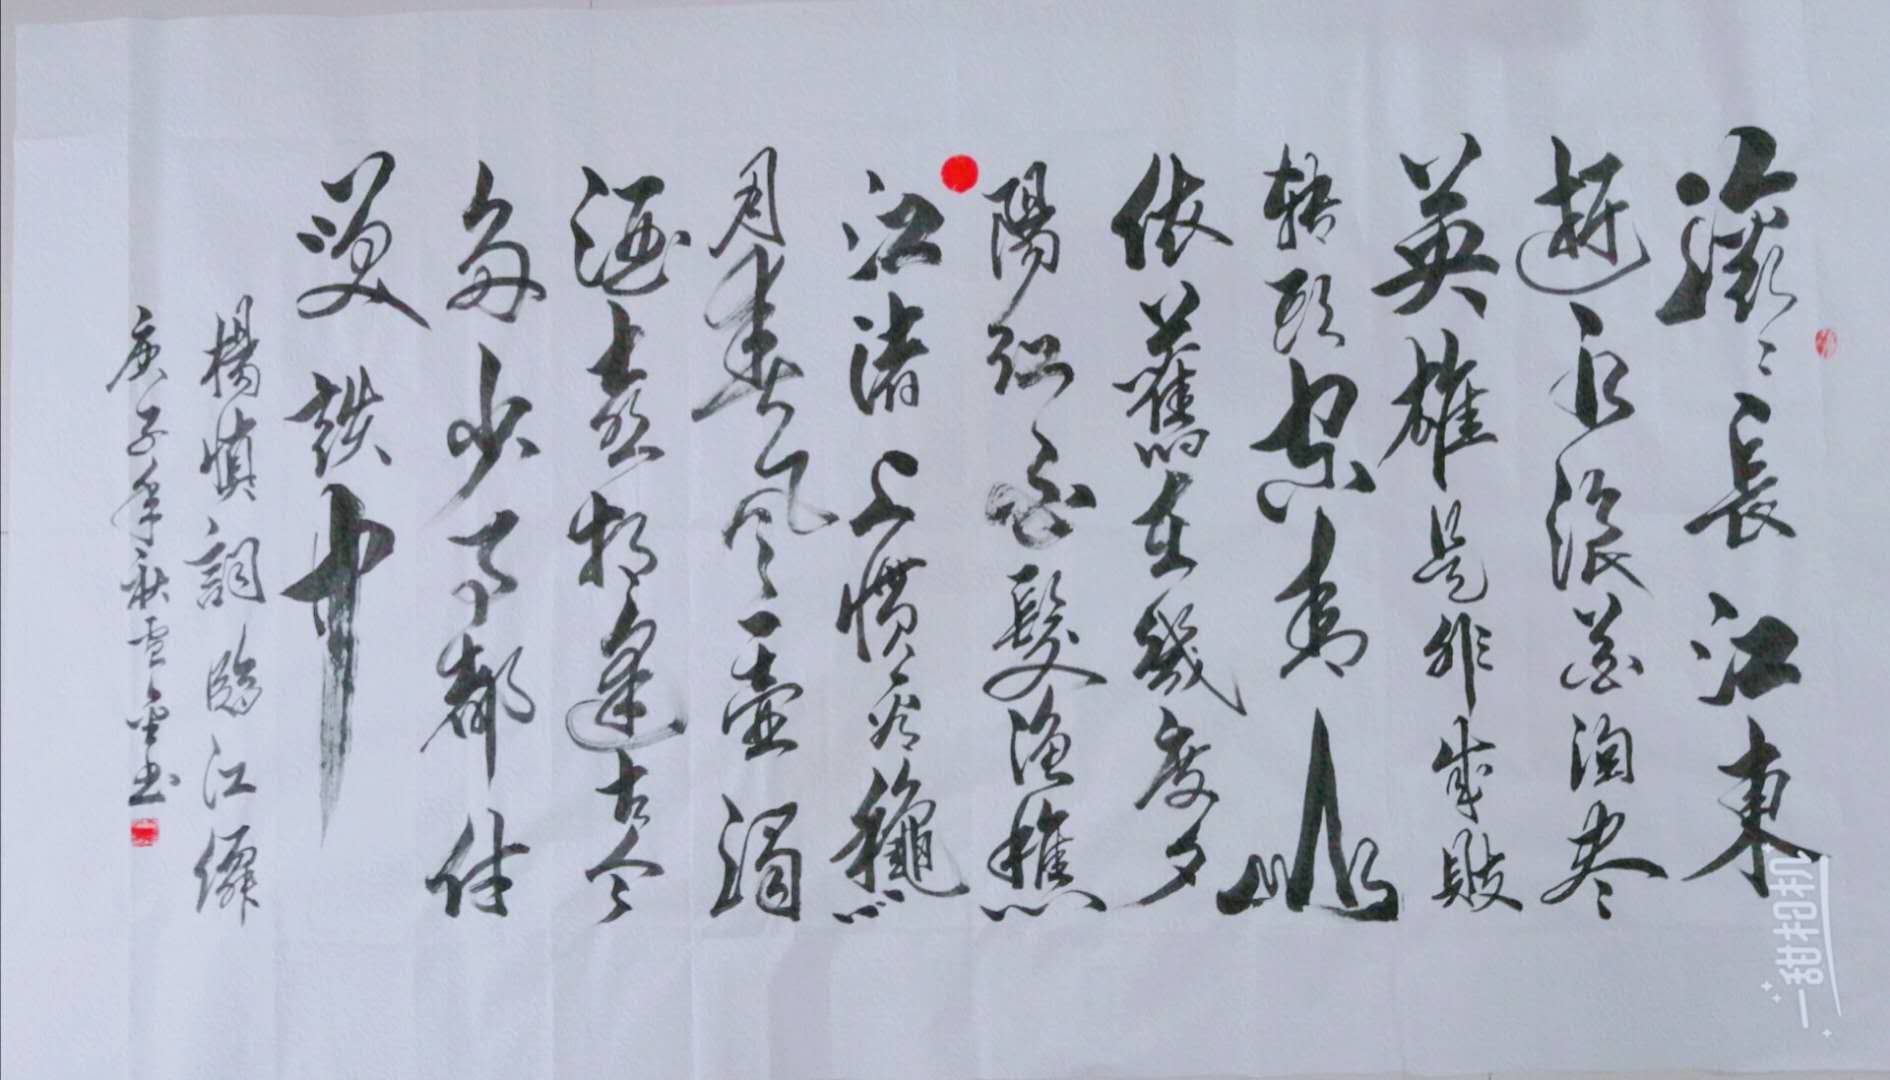 滾〻長江東
逝水浪花淘尽
英雄是非成敗
轉頭空青山
依舊在幾度夕
陽紅白髮漁樵
江渚上慣看龝
月春风一壺濁
酒喜相逢古今
多少事都付
笑談中
楊慎詞臨江僊
庚子年秋书
一甜相机